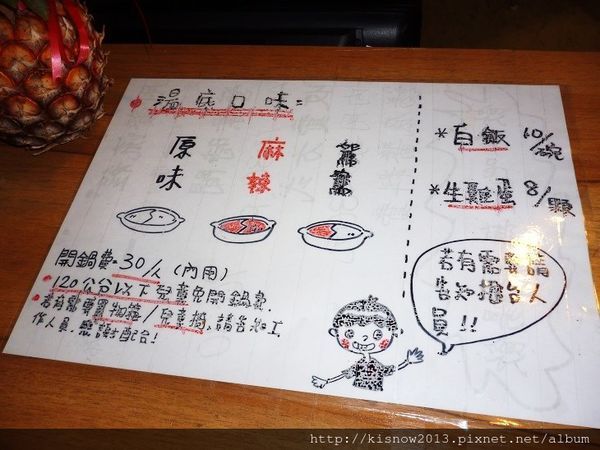 湯底口味：
原味
麻辣
鴛鴦
開鍋費=30/人（內用）
120公分以下兒童免開鍋費.
若有需要置物籃/兒童椅,請告知工
作人員.感謝配合!
*白飯 10/碗
*生雞蛋 8/顆
若有需要請
告知櫃台人
員!!
http://kisnow2013.pixnet.net/album